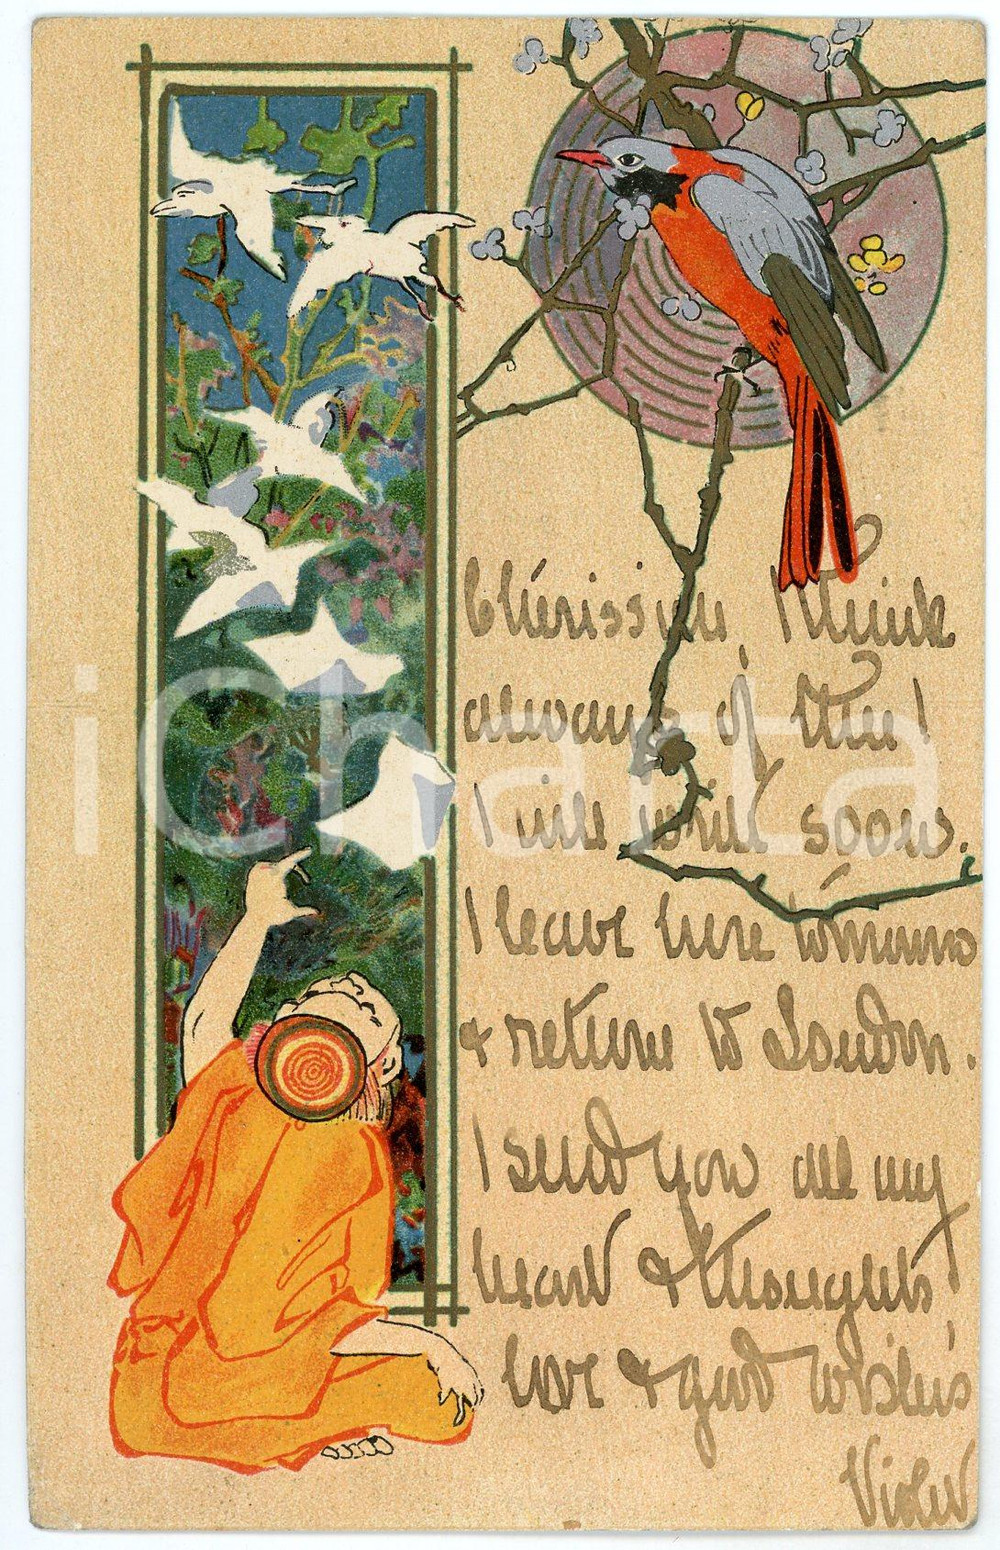 Chérissim, I think
always of thee!
I will write soon.
I leave here tomorrow
& return to London.
I send you all my
heart & thoughts
love & good wishes
Violet
iCharta